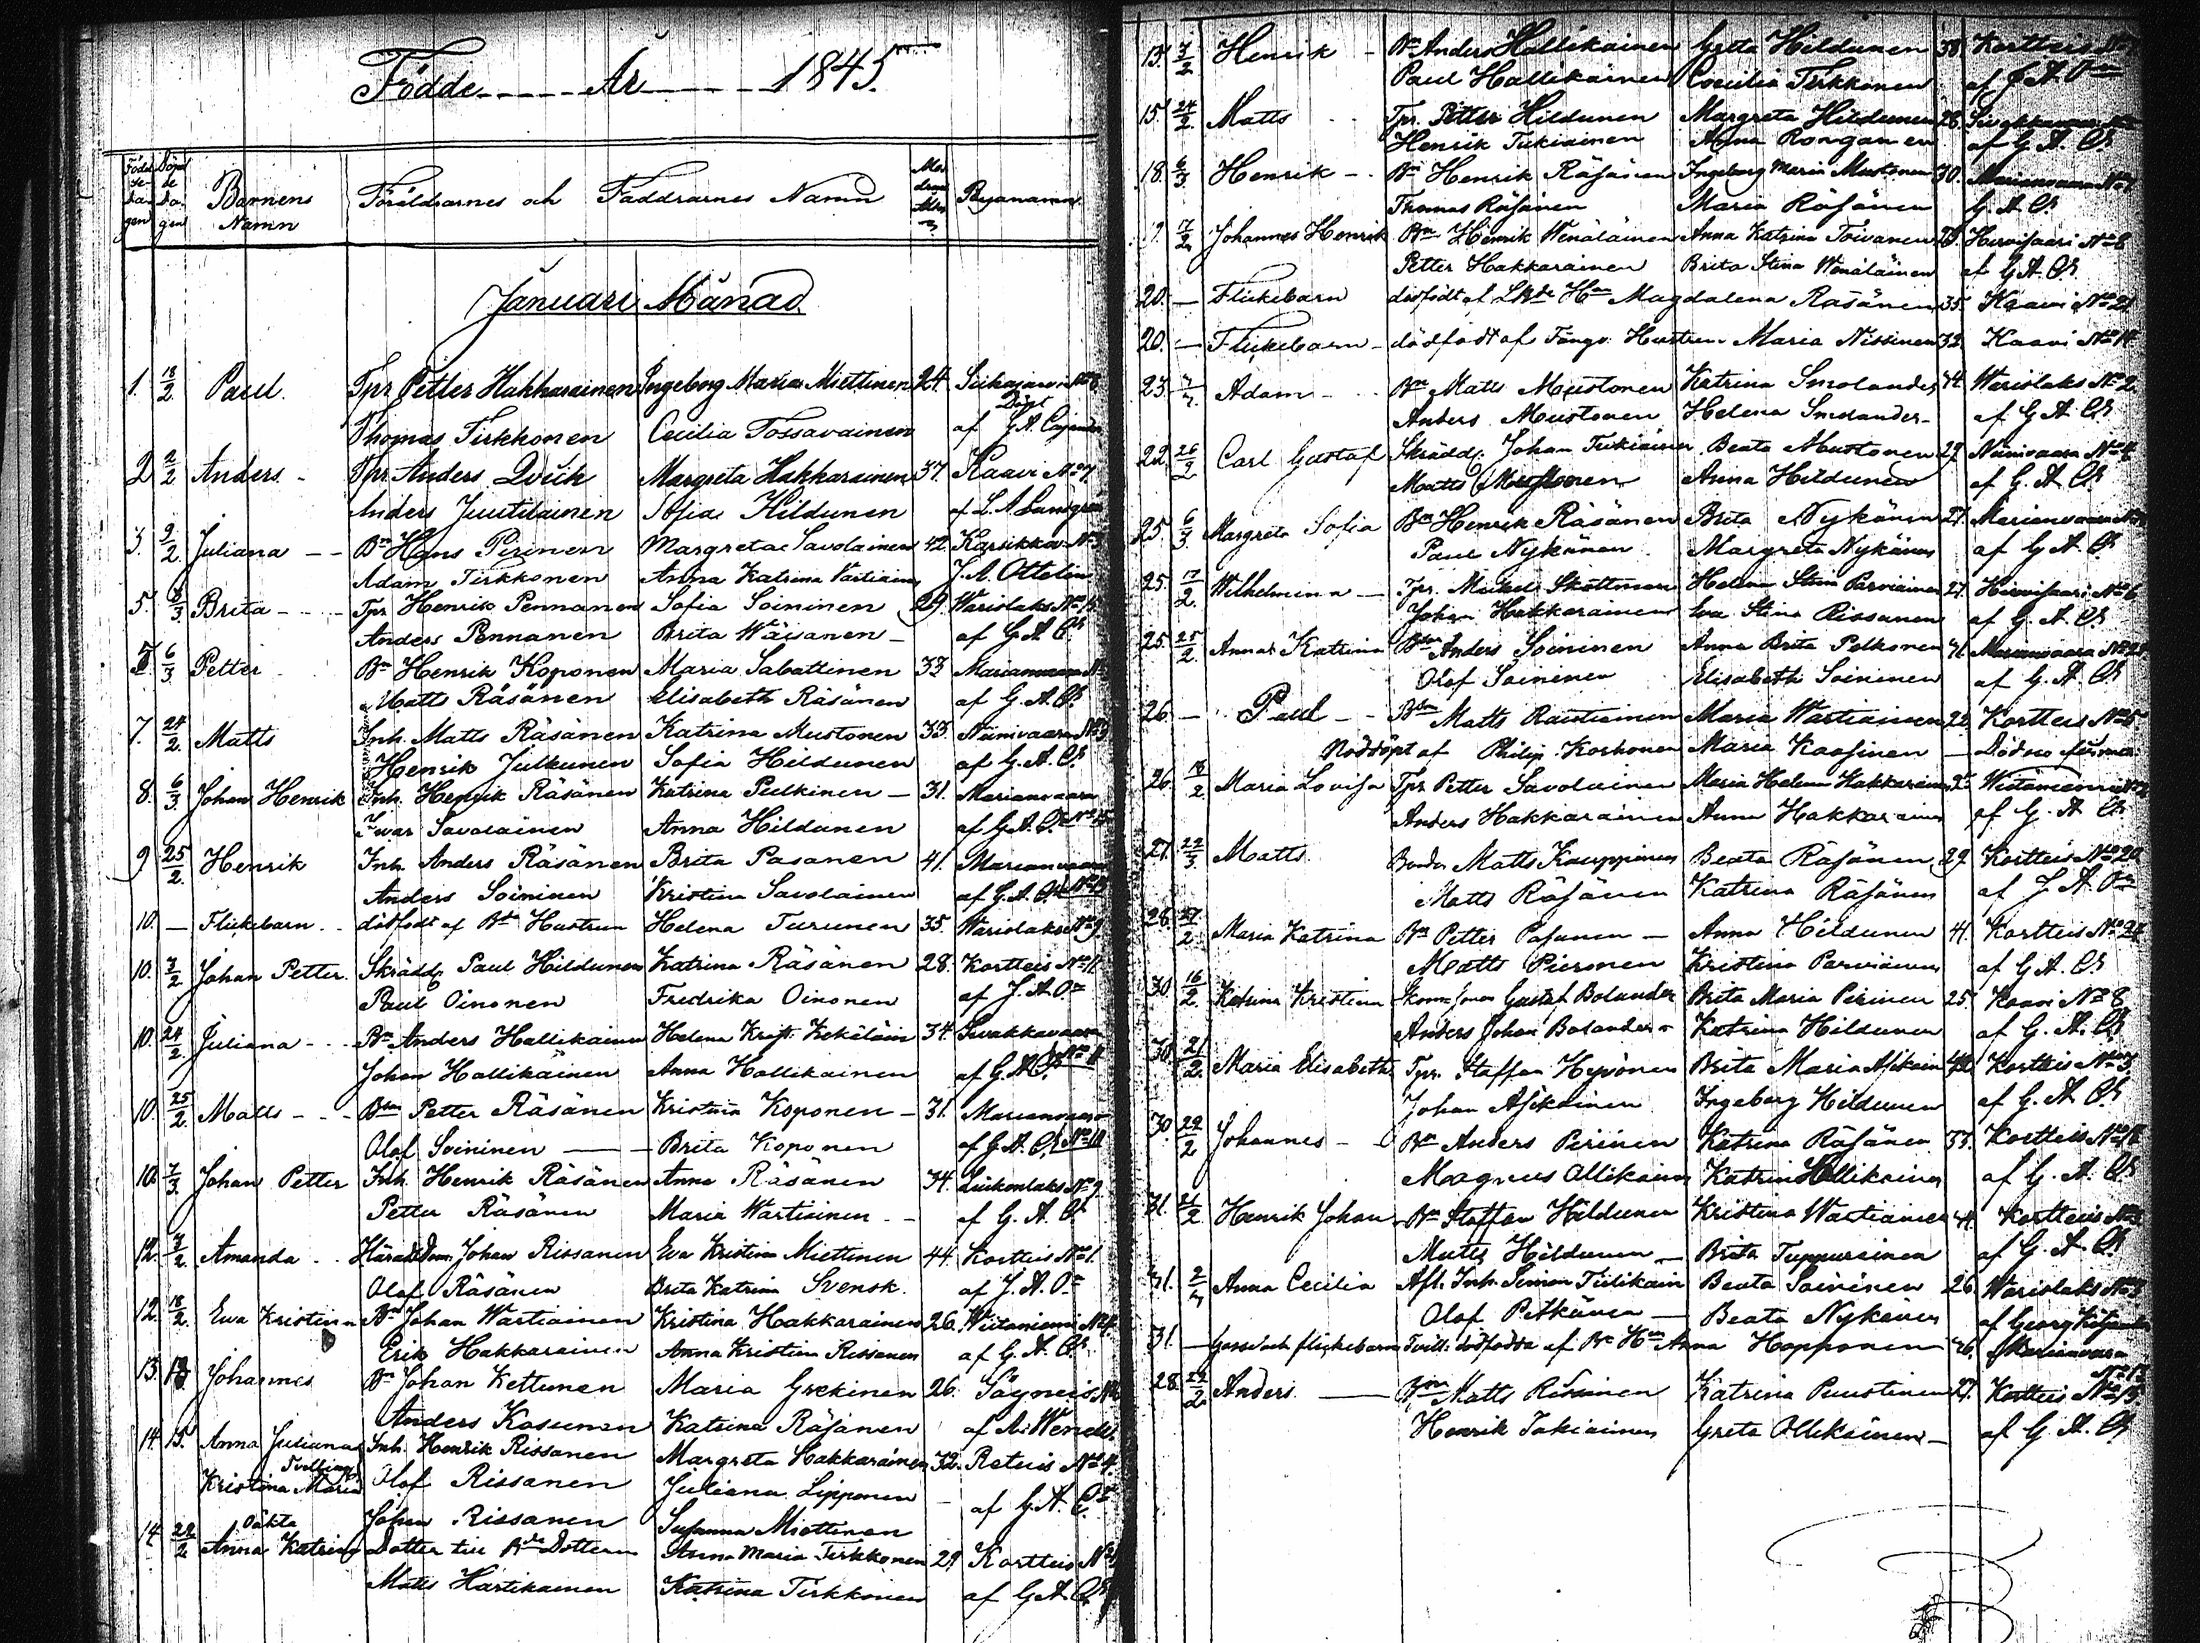 Födde År 1845.
Födelsedagen Döpdedagen Barnens Namn Föräldrarnes och Faddrarnes Namn Modrens Ålder Byanamn
Januari Månad.
1. 18/2 Paul. Tpr Petter Hakkarainen Ingeborg Maria Miettinen 24. Siikajärvi No 8
Döpt
Thomas Tirkkonen Cecilia Tossavainen af G.A. Cajander
2 2/2 Anders. Tpr Anders Qvick Margreta Hakkarainen 37. Kaavi No 7
Anders Juutilainen Sofia Hildunen af L. A Lundgren
3. 9/2 Juliana Bn Hans Pirinen Margreta Savolainen 42. Karsikkov. No 3
Adam Tirkkonen Anna Katrina Vartiainen J. A. Ottelin
5. 3/3 Brita Tpr Henric Pennanen Sofia Soininen 29. Warislaks No 15
Anders Pennanen Brita Wäisänen af G. A. Cr
5. 6/3 Petter Bn Henrik Koponen Maria Sabattinen 33 Marianvaara No
Matts Räsänen Elisabeth Räsänen af G. A. Cr
7. 24/2 Matts Inh. Matts Räsänen Katrina Mustonen 33. Niinivaara No 3
Henrik Julkunen Sofia Hildunen af G. A. Cr
8. 6/3 Johan Henrik Inh. Henrik Räsänen Katrina Pulkinen 31. Marianvaara
Iwar Savolainen Anna Hildunen af G. A. Cr No 15
9 25/2 Henrik Inh. Anders Räsänen Brita Pasanen 41. Marianvaara
Anders Soininen Kristina Savolainen af G. A. Cr No 13
10. Flickebarn dödfödt af Bd Hustrun Helena Turunen 35. Warislaks No 9
10. 7/2 Johan Petter Skrädd Paul Hildunen Katrina Räsänen 28. Kortteis No 11
Paul Oinonen Fredrika Oinonen af J. A. On
10. 24/2 Juliana Bn Anders Hallikainen Helena Krist. Kekäläin 34. Sivakkavaara
Johan Hallikäinen Anna Hallikainen af G. A. Cr No 11
10. 25/2 Matts Bdn Petter Räsänen Kristina Koponen 31. Marianvaara
Olof Soininen Brita Koponen af G. A. Cr No 10
10. 7/3 Johan Petter Inh. Henrik Räsänen Anna Räsänen 34. Luikonlaks No 9
Petter Räsänen Maria Wartiainen af G. A. Cr
12. 7/2 Amanda HäradsDom. Johan Rissanen Eva Kristina Miettinen 44. Kortteis No 1.
Olof Räsänen Brita Katrina Svensk. af J. A. On
12. 18/2 Ewa Kristina Bn Johan Wartiainen Kristina Hakkarainen 26. Wiitaniemi No 4.
Erik Hakkarainen Anna Kristina Rissanen af G. A. Cr
13. Johannes Bn Johan Kettunen Maria Grekinen 26. Säyneis No
Anders Kasunen Katrina Räsänen af A. Wendel
14. 15. Anna Juliana Inh. Henrik Rissanen Margreta Hakkarainen 32. Retuis No 4.
Tvillingar
Kristina Maria Olof Rissanen Juliana Lipponen af G. A. Cr
Johan Rissanen Susanna Miettinen
Oäkta
14. 22/2 Anna Katrina Dotter till Bde Dottern Anna Maria Tirkkonen 29 Kortteis No
Matts Hartikainen Katrina Tirkkonen af G. A. Cr
15. 7/2 Henrik Bn Anders Hallikainen Getta Hildunen 38. Kortteis No
Paul Hallikäinen Cecilia Tirkkonen af J. A. On
15. 24/2 Matts Tpr. Petter Hildunen Margreta Hildunen 28. Sivakkavaara
Henrik Tukiainen Anna Ronganen af G. A. Cr
18. 6/3 Henrik Bn Henrik Räsänen Ingeborg Maria Mustonen 30. Marianvaara No
Thomas Räsänen Maria Räsänen G. A. Cr
17/2 Johannes Henrik Bn Henrik Wenäläinen Anna Katrina Toivanen 29. Hirvisaari No 8
Petter Hakkarainen Brita Stina Wenäläinen af G. A. Cr
20. Flickebarn dödfödt af Hn Magdalena Räsänen 35. Kaavi No 21
20. Flickebarn dödfödt af Hustrun Maria Nissinen 32. Kaavi No 14
23. Adam Bn Matts Mustonen Katrina Smolander 44. Warislaks No 2
Anders Mustonen Helena Smolander af G. A. Cr
22. 26/2 Carl Gustaf Skrädd. Johan Tukiainen Beata Mustonen 29 Niinivaara No 4
Matts Mustonen Anna Hildunen af G. A. Cr
25. 6/3 Margreta Sofia Bn Henrik Räsänen Brita Nykänen 27. Marianvaara No
Paul Nykänen Margreta Nykänen af G. A. Cr
25. 17/2 Wilhelmina Tpr. Mickel Skottman Helena Stina Parviainen 27. Hirvisaari No 6
Johan Hakkarainen Eva Stina Rissanen af G. A. Cr
25. 25/2 Anna Katrina Bdn Anders Soininen Anna Brita Polkonen 41. Marianvaara No
Olof Soininen Elisabeth Soininen af G. A. Cr
26. Paul Bdn Matts Rautiainen Maria Wartiainen 22. Kortteis No 5
Nöddöpt af Philip Korhonen Maria Kaasinen
26. 18/2 Maria Lovisa Tpr Petter Savolainen Maria Helena Hakkarainen 25. Wiitaniemi No
Anders Hakkarainen Anna Hakkarainen af G. A. Cr
27. 22/3 Matts. Bonden Matts Kauppinen Beata Räsänen 29 Kortteis No 20
Matts Räsänen Katrina Räsänen af J. A. On
28. 27/2 Maria Katrina Bn Petter Pasanen Anna Hildunen 41. Kortteis No 24
Matts Piironen Kristina Parviainen af G. A. Cr
30. 16/2 Katrina Kristina Gustaf Bolander Brita Maria Pirinen 25. Kaavi No 8
Anders Johan Bolander Katrina Hildunen af G. A. Cr
30. 21/2 Maria Elisabeth Tpr. Staffan Hyvönen Brita Maria Asikain Kortteis No 3
Johan Asikainen Ingeborg Hildunen af G. A. Cr
30. 22/2 Johannes Bn Anders Pirinen Katrina Räsänen 33. Kortteis No 18
Magnus Ollikainen Katrin Hallikainen af G. A. Cr
31. 21/2 Henrik Johan Bn Staffan Hildunen Kristina Wartiainen 41. Kortteis No
Matts Hildunen Brita Tuppurainen af G. A. Cr
31. Anna Cecilia Afl. Inh. Simon Tiilikain Beata Soininen 26. Warislaks No
Olof Pitkänen Beata Nykänen af Georg
31. Gosse och flickebarn Tvill. dödfödda af Bn Hn Anna Happonen 26. Marianvaara
No 13
28. 22/2 Anders. Matts Räsäinen Katrina Puustinen 27. Kortteis No 15
Henrik Tukiainen Greta Ollikainen af G. A. Cr